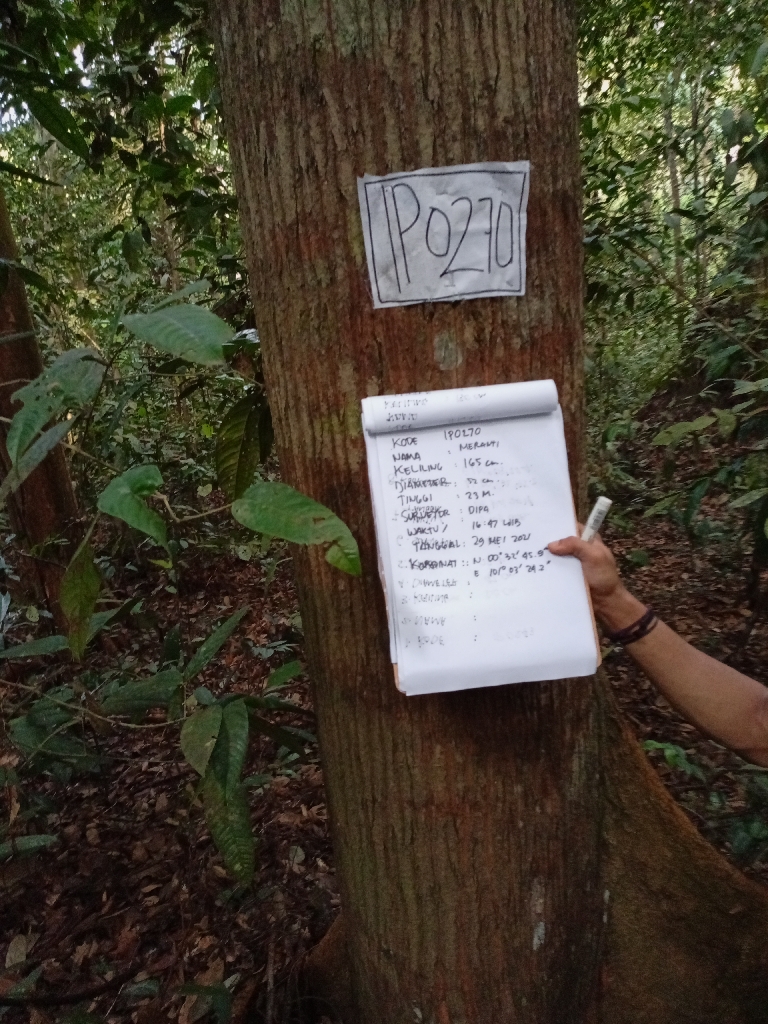 IP0270
KODE IP0270
NAMA : MERANTI
KELILING : 165 cm.
DIAMETER : 52 cm
TINGGI : 23 M.
SURVEYOR : DIPA
WAKTU/ 16:47 WIB
TANGGAL : 29 MEI 2021
KORDINAT : N 00° 32' 45.9"
E 101° 03' 29.2"